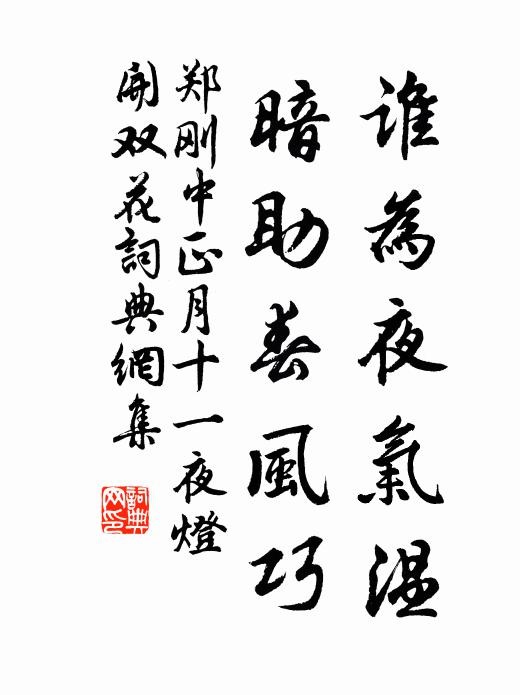 誰為夜氣温
暗助春風巧
郑刚中正月十一夜燈
開双花詞典網集
詞典网印